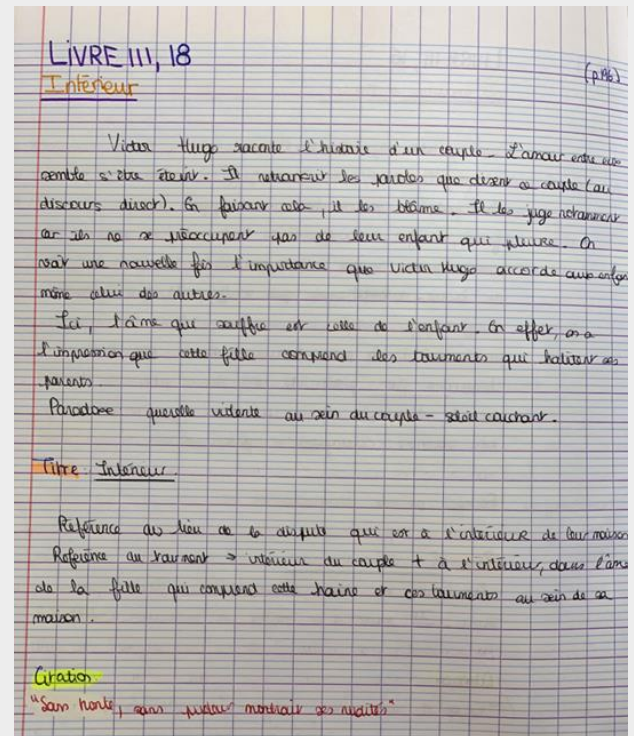 LIVRE III, 18
(p.196)
Intérieur
Victor Hugo raconte l'histoire d'un couple. L'amour entre eux
semble s'être éteint. Il retranscrit les paroles que disent ce couple (au
discours direct). En faisant cela, il les blâme. Il les juge notamment
car ils ne se préoccupent pas de leur enfant qui pleure. On
voit une nouvelle fois l'importance que Victor Hugo accorde aux enfan
même celui des autres.
Ici, l'âme qui souffre est celle de l'enfant. En effet, on a
l'impression que cette fille comprend les tourments qui habitent ses
parents.
Paradoxe querelle violente au sein du couple - soleil couchant.
Titre : Intérieur.
Référence au lieu de la dispute qui est à l'intérieur de leur maison
Référence au tourment > intérieur du couple + à l'intérieur, dans l'âme
de la fille qui comprend cette haine et ces tourments au sein de sa
maison.
Citation
"Sans honte, sans pudeur montrait ses nudités"